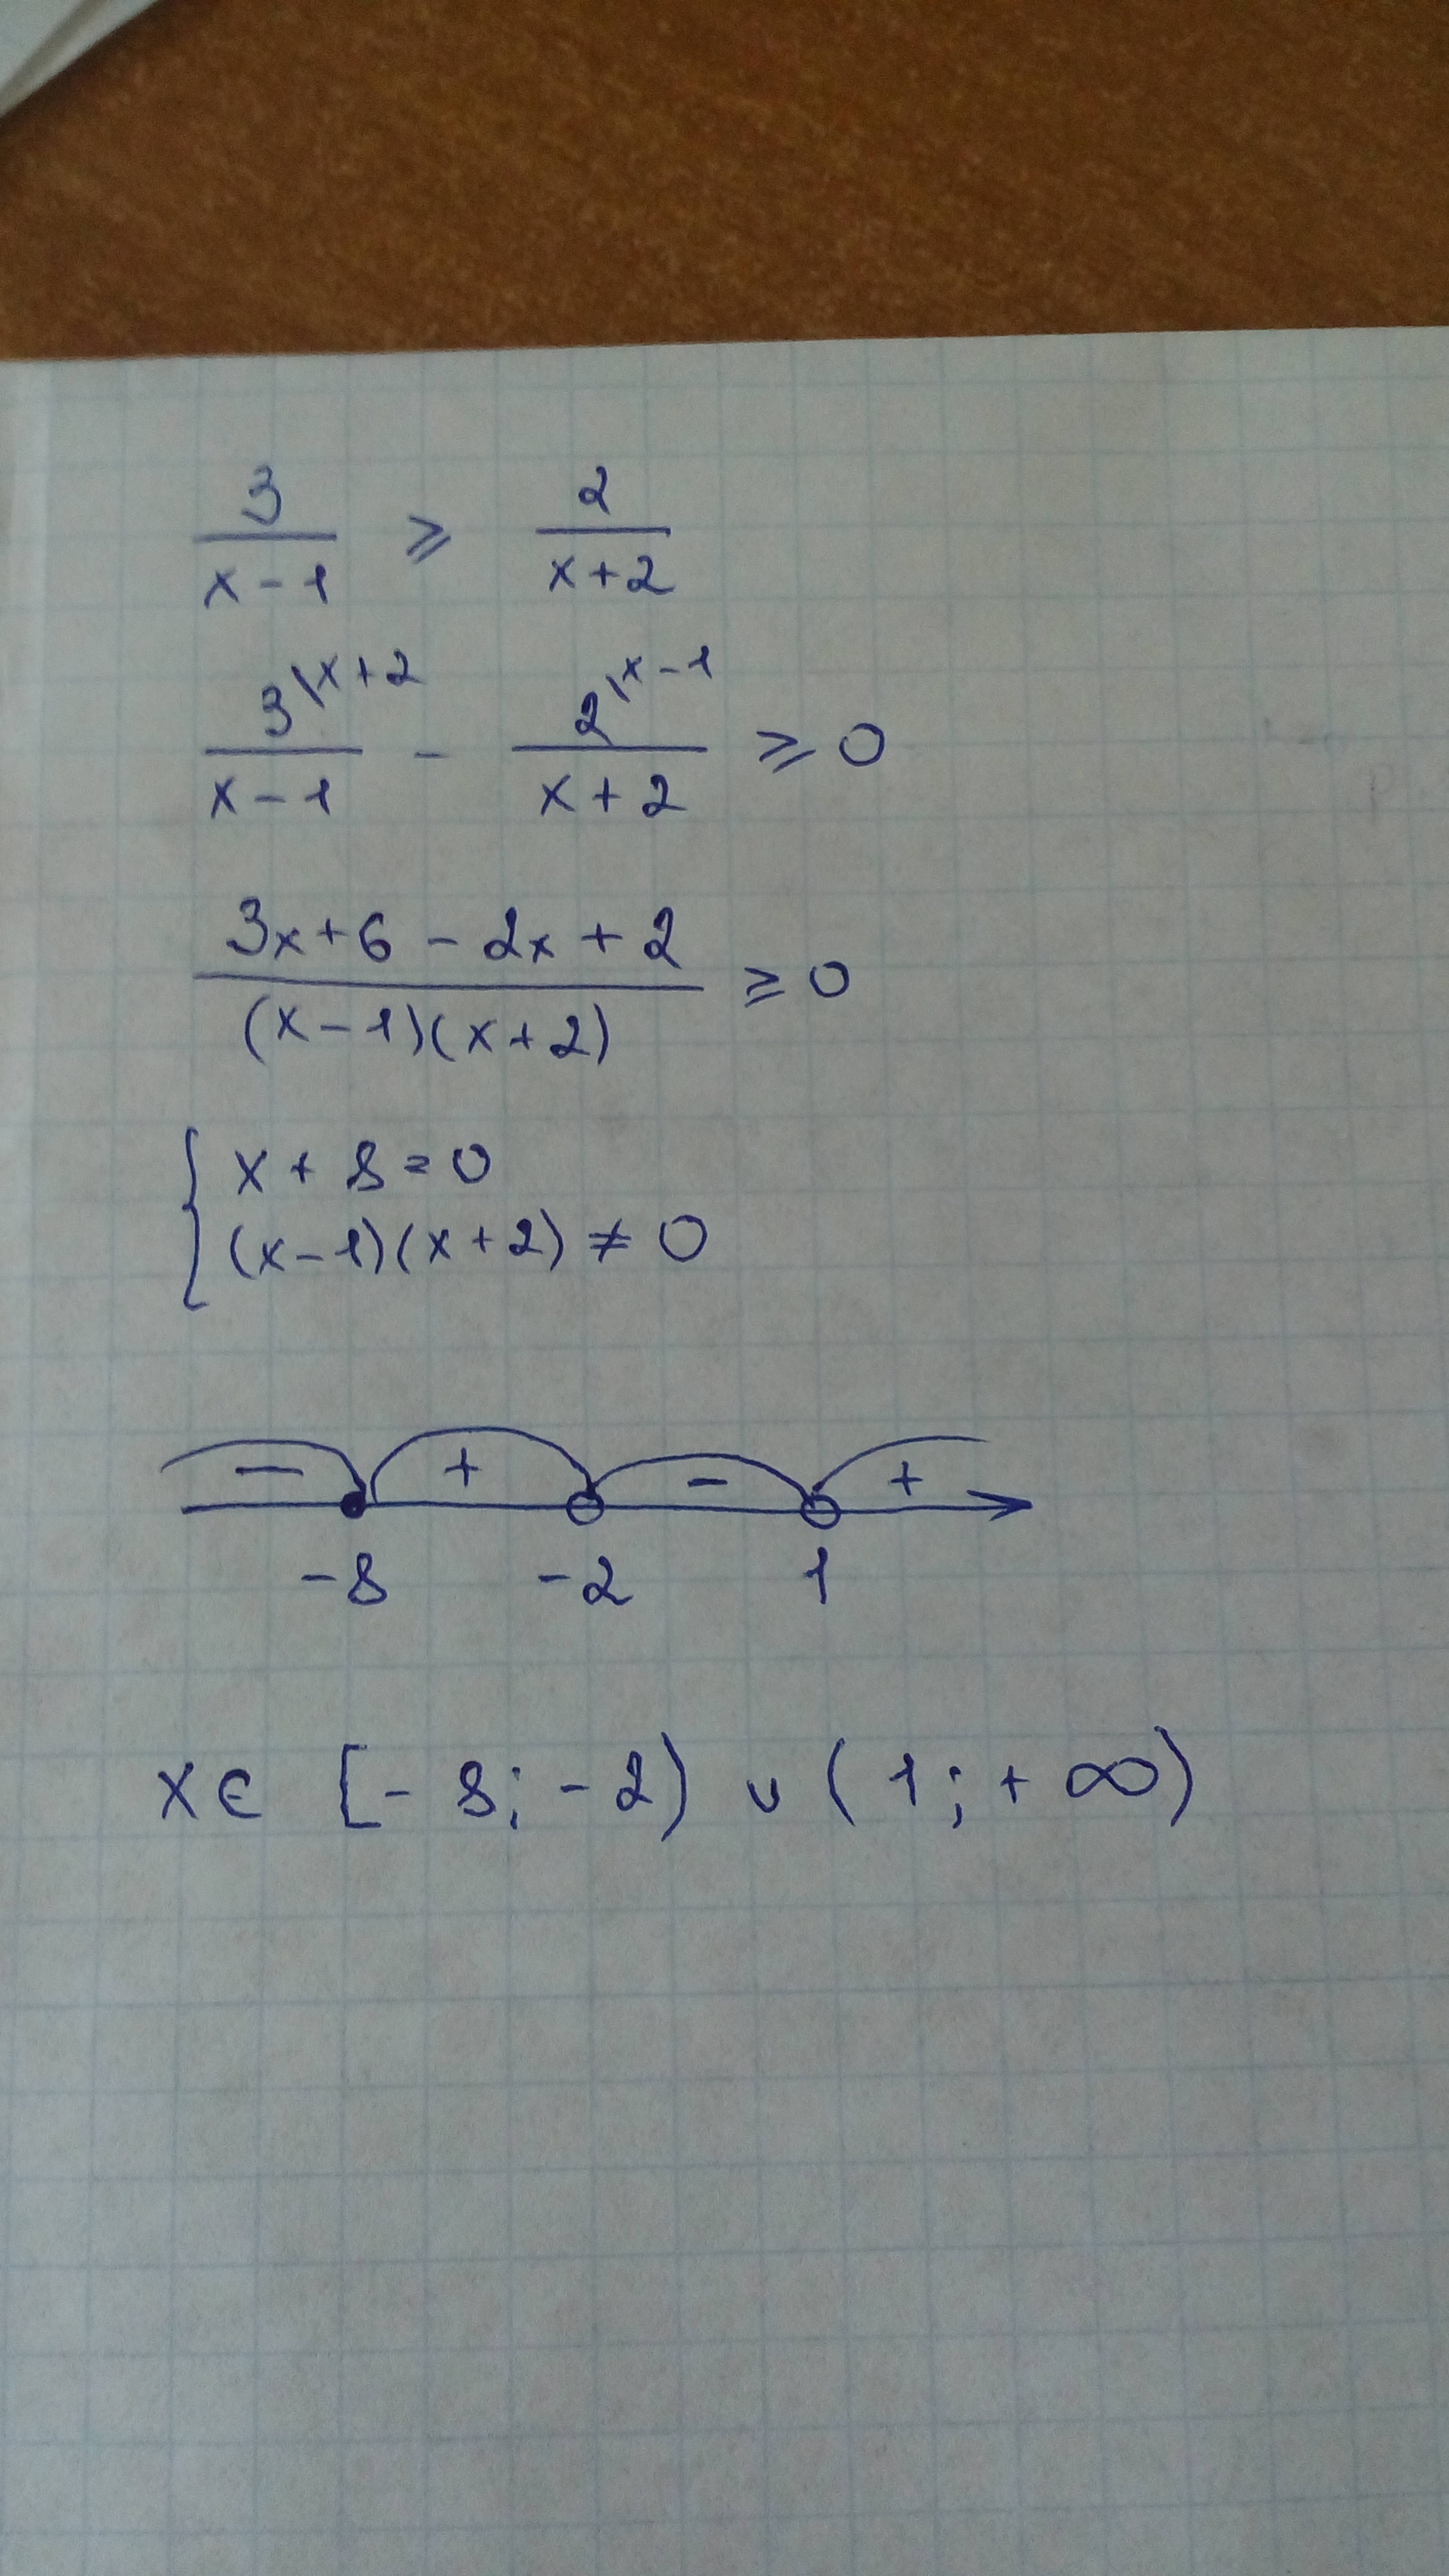 3/(x-1) ⩾ 2/(x+2)
3\x+2/(x-1) - 2\x-1/(x+2) ⩾ 0
(3x+6-2x+2)/((x-1)(x+2)) ⩾ 0
{ x+8=0
(x-1)(x+2)≠0
- + - +
-8 -2 1
x∈ [-8;-2) ∪ (1;+∞)